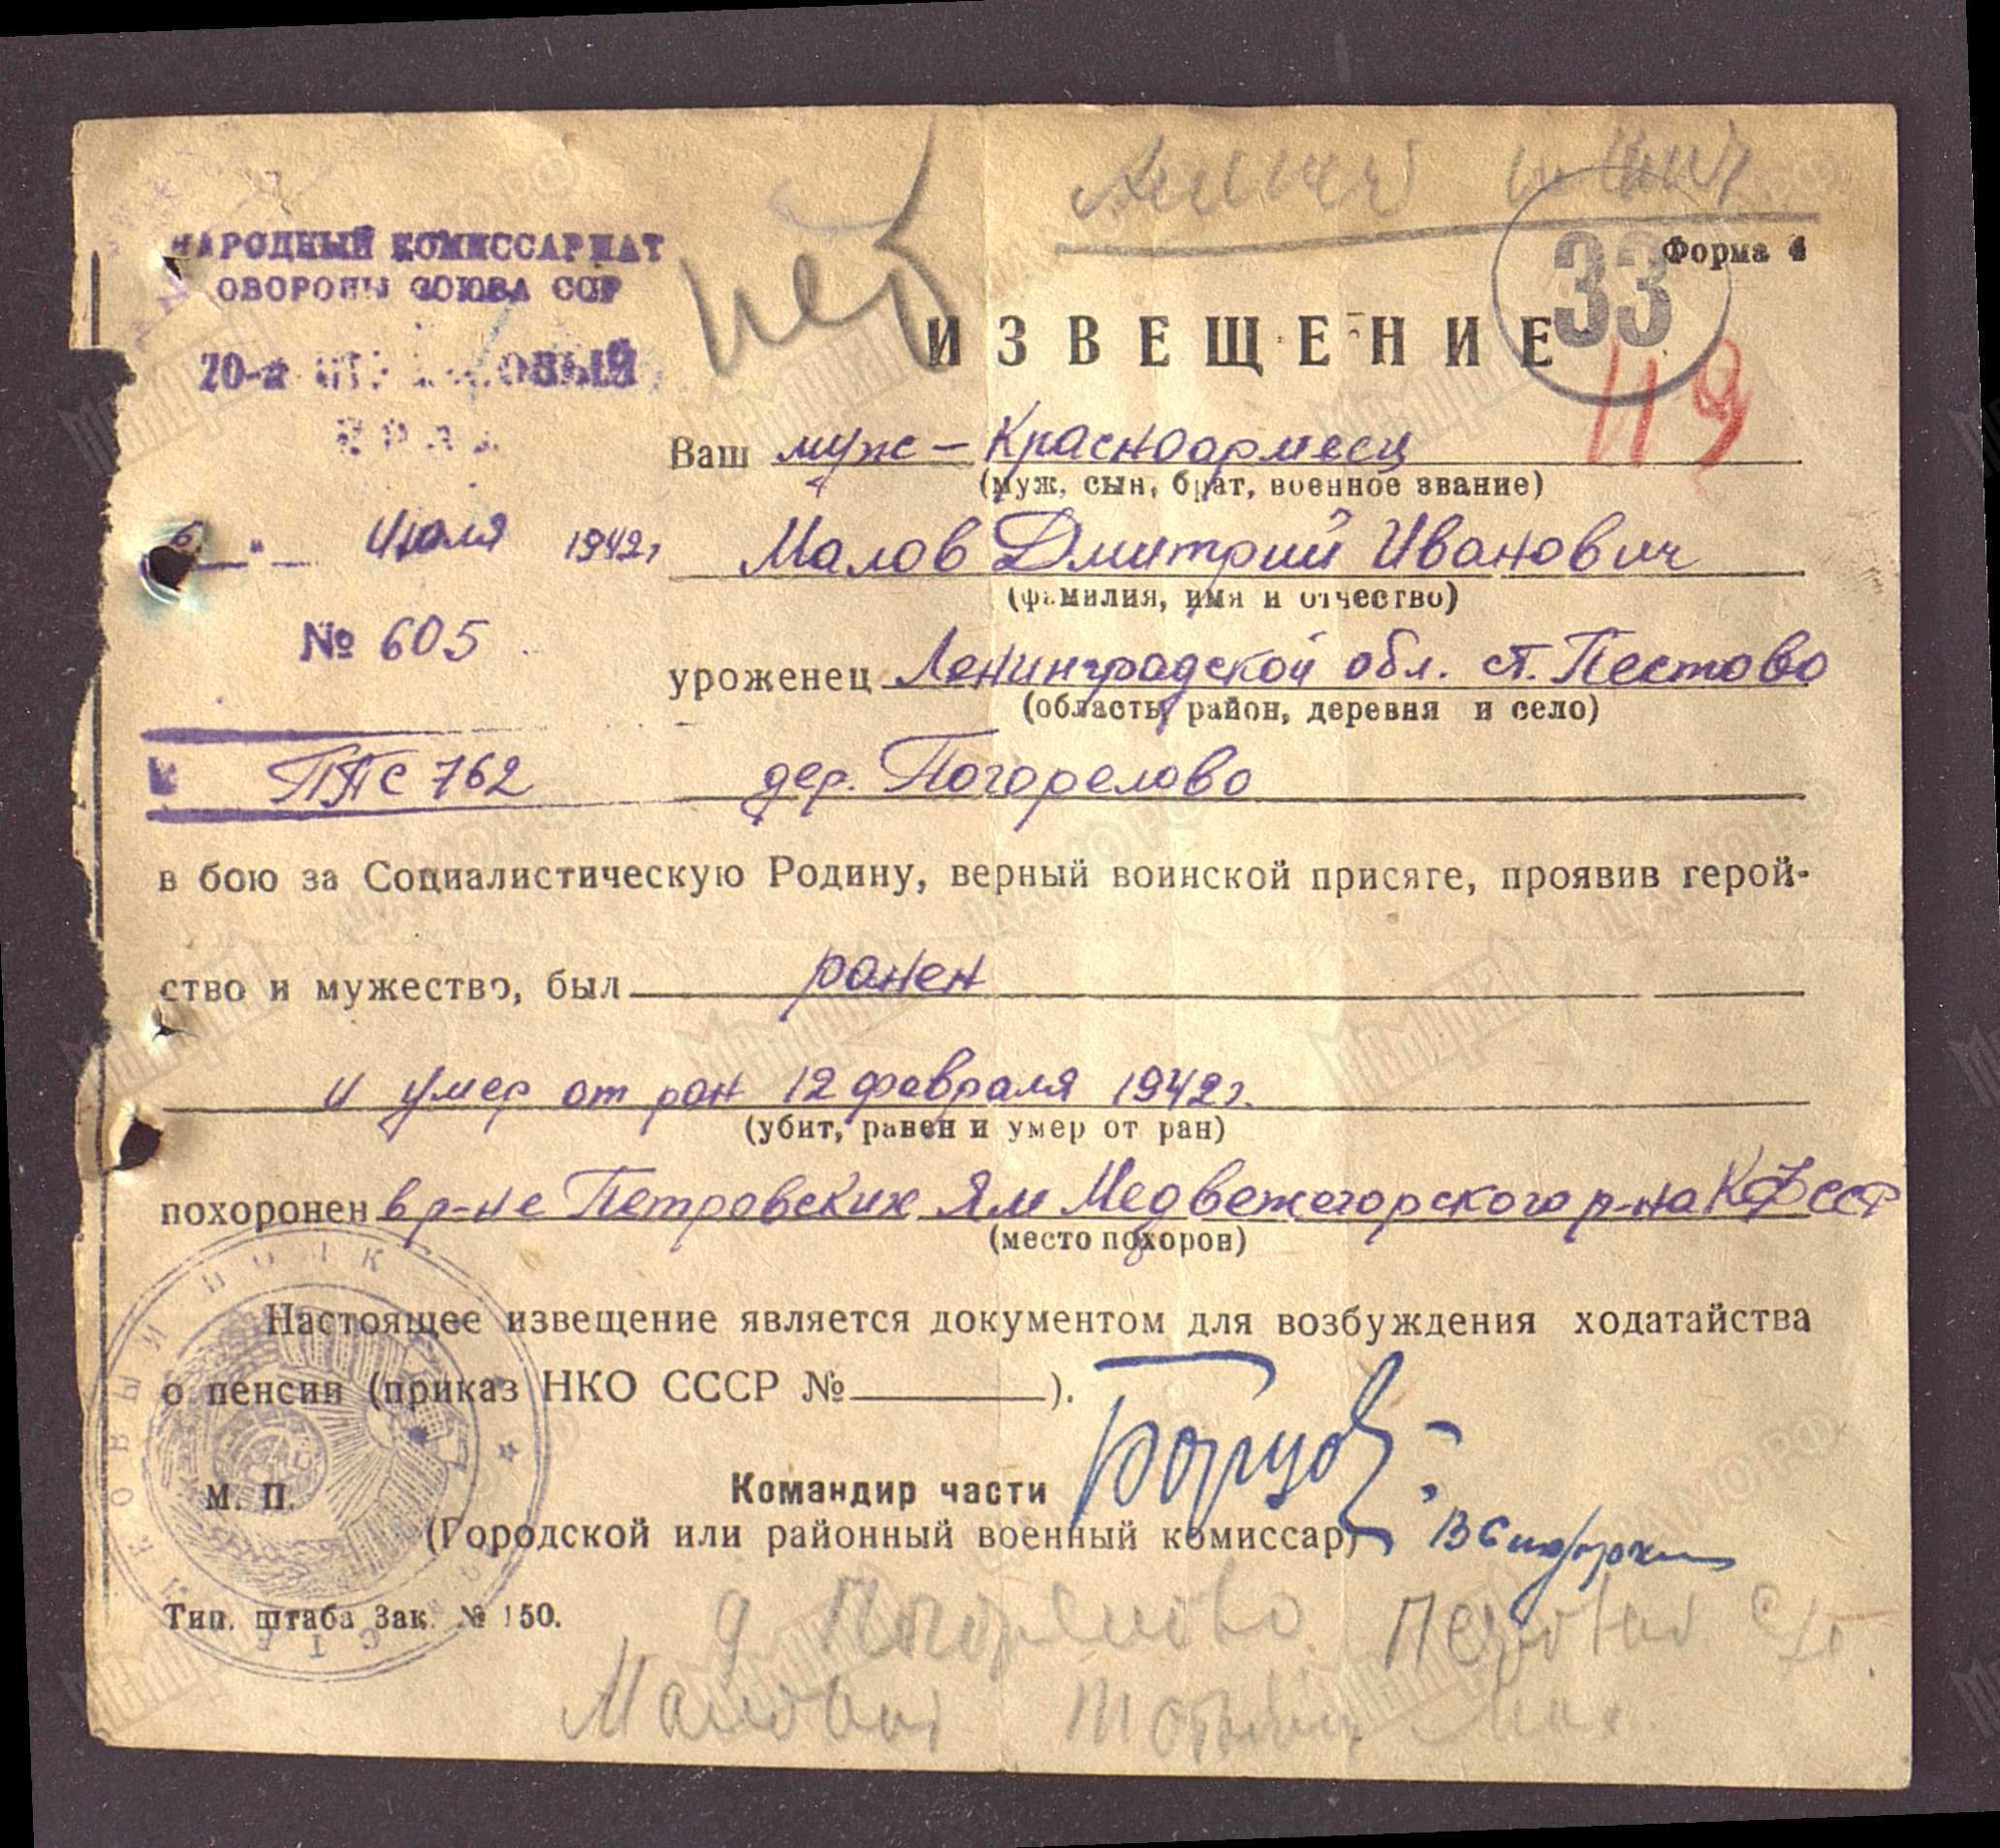 НАРОДНЫЙ КОМИССАРИАТ
ОБОРОНЫ СОЮЗА ССР
Форма 4
33
ИЗВЕЩЕНИЕ
119
Ваш муж - Красноармеец
(муж, сын, брат, военное звание)
6 " Июля 1942г
Малов Дмитрий Иванович
(фамилия, имя и отчество)
№ 605
уроженец Ленинградской обл. ст. Пестово
(область, район, деревня и село)
ППС 762
дер. Погорелово
в бою за Социалистическую Родину, верный воинской присяге, проявив герой-
ство и мужество, был ранен
и умер от ран 12 февраля 1942г.
(убит, ранен и умер от ран)
похоронен в р-не Петровских Ям Медвежегорского р-на КФССР
(место похорон)
Настоящее извещение является документом для возбуждения ходатайства
о пенсии (приказ НКО СССР № ).
М. П.
Командир части
(Городской или районный военный комиссар)
Тип. штаба Зак. № 150.
д Погорелово
Маловой